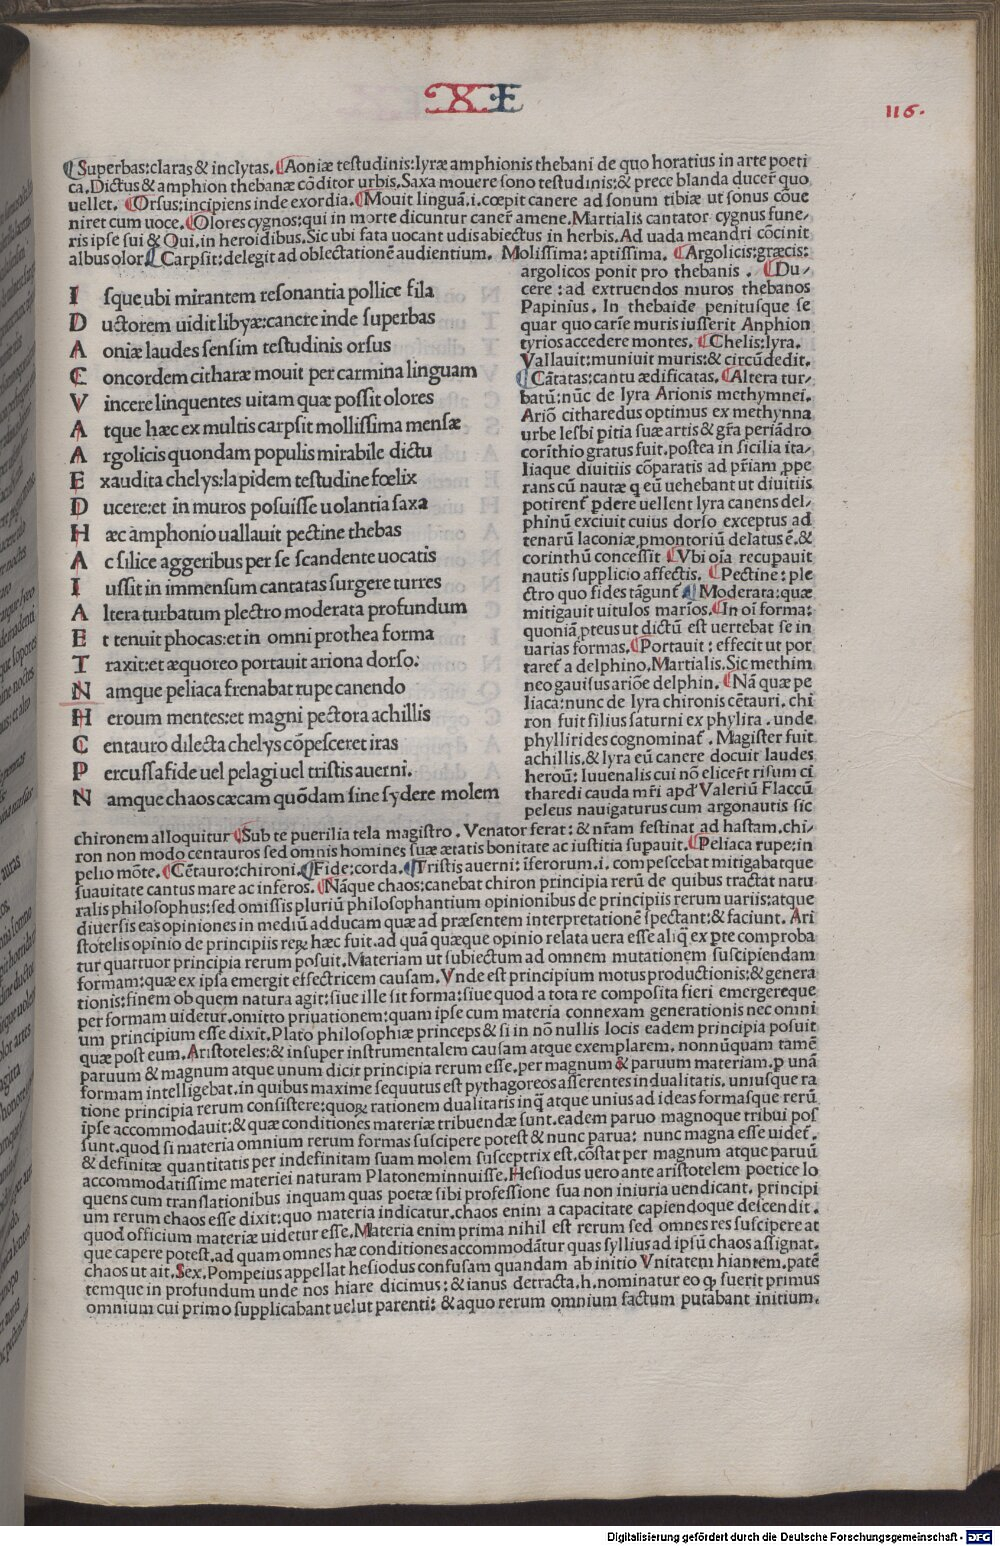 XI
116.
¶Superbas:claras & inclytas. ¶Aoniæ testudinis:lyræ amphionis thebani de quo horatius in arte poeti
ca.Dictus & amphion thebanæ cōditor urbis.Saxa mouere sono testudinis:& prece blanda ducer̄ quo
uellet. ¶Orsus:incipiens inde exordia. ¶Mouit linguā.i.cœpit canere ad sonum tibiæ ut sonus cōue
niret cum uoce. ¶Olores cygnos:qui in morte dicuntur caner̄ amene.Martialis cantator cygnus fune/
ris ipse sui & Oui.in heroidibus.Sic ubi fata uocant udis abiectus in herbis.Ad uada meandri cōcinit
albus olor ¶Carpsit:delegit ad oblectationē audientium. Molissima:aptissima. ¶Argolicis:græcis:
I sque ubi mirantem resonantia pollice fila
D uctorem uidit libyæ:canere inde superbas
A oniæ laudes sensim testudinis orsus
C oncordem citharæ mouit per carmina linguam
V incere linquentes uitam quæ possit olores
A tque hæc ex multis carpsit mollissima mensæ
A rgolicis quondam populis mirabile dictu
E xaudita chelys:lapidem testudine fœlix
D ucere:et in muros posuisse uolantia saxa
H æc amphonio uallauit pectine thebas
A c silice aggeribus per se scandente uocatis
I ussit in immensum cantatas surgere turres
A ltera turbatum plectro moderata profundum
E t tenuit phocas:et in omni prothea forma
T raxit:et æquoreo portauit ariona dorso:
N amque peliaca frenabat rupe canendo
H eroum mentes:et magni pectora achillis
C entauro dilecta chelys cōpesceret iras
P ercussa fide uel pelagi uel tristis auerni.
N amque chaos cæcam quōdam sine sydere molem
argolicos ponit pro thebanis . ¶Du/
cere : ad extruendos muros thebanos
Papinius. In thebaide penitusque se
quar quo carīe muris iusserit Anphion
tyrios accedere montes. ¶Chelis:lyra.
Vallauit:muniuit muris:& circūdedit.
¶Cātatas:cantu ædificatas. ¶Altera tur/
batū:nūc de lyra Arionis methymnei.
Ariō citharedus optimus ex methynna
urbe lesbi pitia suæ artis & gr̄a periādro
corīthio gratus fuit.postea in sicilia ita/
liaque diuitiis cōparatis ad pr̄iam ꝓpe
rans cū nautæ q eū uehebant ut diuitiis
potirent̄ ꝑdere uellent lyra canens del/
phinū exciuit cuius dorso exceptus ad
tenarū laconiæ ꝓmontoriū delatus ē.&
corinthū concessit ¶Vbi oīa recupauit
nautis supplicio affectis. ¶Pectine : ple
ctro quo fides tāgunt̄ ¶Moderata:quæ
mitigauit uitulos marios. ¶In oī forma:
quoniā ꝓteus ut dictū est uertebat se in
uarias formas. ¶Portauit : effecit ut por
taret̄ a delphino.Martialis.Sic methim
neo gauisus ariōe delphin. ¶Nā quæ pe
liaca:nunc de lyra chironis cētauri. chi
ron fuit filius saturni ex phylira . unde
phyllirides cognominat̄ . Magister fuit
achillis.& lyra eū canere docuit laudes
heroū: Iuuenalis cui nō elicer̄t risum ci
tharedi cauda mr̄i apd' Valeriū Flaccū
peleus nauigaturus cum argonautis sic
chironem alloquitur ¶Sub te puerilia tela magistro . Venator ferat : & nr̄am festinat ad hastam.chi/
ron non modo centauros sed omnis homines suæ ætatis bonitate ac iustitia supauit. ¶Peliaca rupe:in
pelio mōte. ¶Cētauro:chironi. ¶Fide:corda. ¶Tristis auerni: īferorum.i. compescebat mitigabatque
suauitate cantus mare ac inferos. ¶Nāque chaos:canebat chiron principia rerū de quibus tractat natu
ralis philosophus:sed omissis pluriū philosophantium opinionibus de principiis rerum uariis:atque
diuersis eas opiniones in mediū adducam quæ ad præsentem interpretationē spectant:& faciunt. Ari
stotelis opinio de principiis reꝝ hæc fuit.ad quā quæque opinio relata uera esse aliq̄ ex ꝑte comproba
tur quattuor principia rerum posuit.Materiam ut subiectum ad omnem mutationem suscipiendam
formam:quæ ex ipsa emergit effectricem causam. Vnde est principium motus productionis:& genera
tionis:finem ob quem natura agit:siue ille sit forma:siue quod a tota re composita fieri emergereque
per formam uidetur.omitto priuationem:quam ipse cum materia connexam generationis nec omni
um principium esse dixit.Plato philosophiæ princeps & si in nō nullis locis eadem principia posuit
quæ post eum.Aristoteles:& insuper instrumentalem causam atque exemplarem.nonnūquam tamē
paruum & magnum atque unum dicit principia rerum esse.per magnum & paruum materiam.ꝑ unā
formam intelligebat.in quibus maxime sequutus est pythagoreos asserentes indualitatis. uniusque ra
tione principia rerum consistere:quoꝝ rationem dualitatis inq̄ atque unius ad ideas formasque rerū
ipse accommodauit:& quæ conditiones materiæ tribuendæ sunt.eadem paruo magnoque tribui pos
sunt.quod si materia omnium rerum formas suscipere potest & nunc parua: nunc magna esse uidet̄.
& definitæ quantitatis per indefinitam suam molem susceptrix est.cōstat per magnum atque paruū
accommodatissime materiei naturam Platonem innuisse.Hesiodus uero ante aristotelem poetice lo
quens cum translationibus inquam quas poetæ sibi professione sua non iniuria uendicant. principi
um rerum chaos esse dixit:quo materia indicatur.chaos enim a capacitate capiendoque descendit .
quod officium materiæ uidetur esse.Materia enim prima nihil est rerum sed omnes res suscipere at
que capere potest.ad quam omnes hæ conditiones accommodātur quas syllius ad ipsū chaos assignat.
chaos ut ait.Sex.Pompeius appellat hesiodus confusam quandam ab initio Vnitatem hiantem.patē
temque in profundum unde nos hiare dicimus : & ianus detracta.h.nominatur eo ꝙ fuerit primus
omnium cui primo supplicabant uelut parenti: & a quo rerum omnium factum putabant initium.
Digitalisierung gefördert durch die Deutsche Forschungsgemeinschaft - DFG